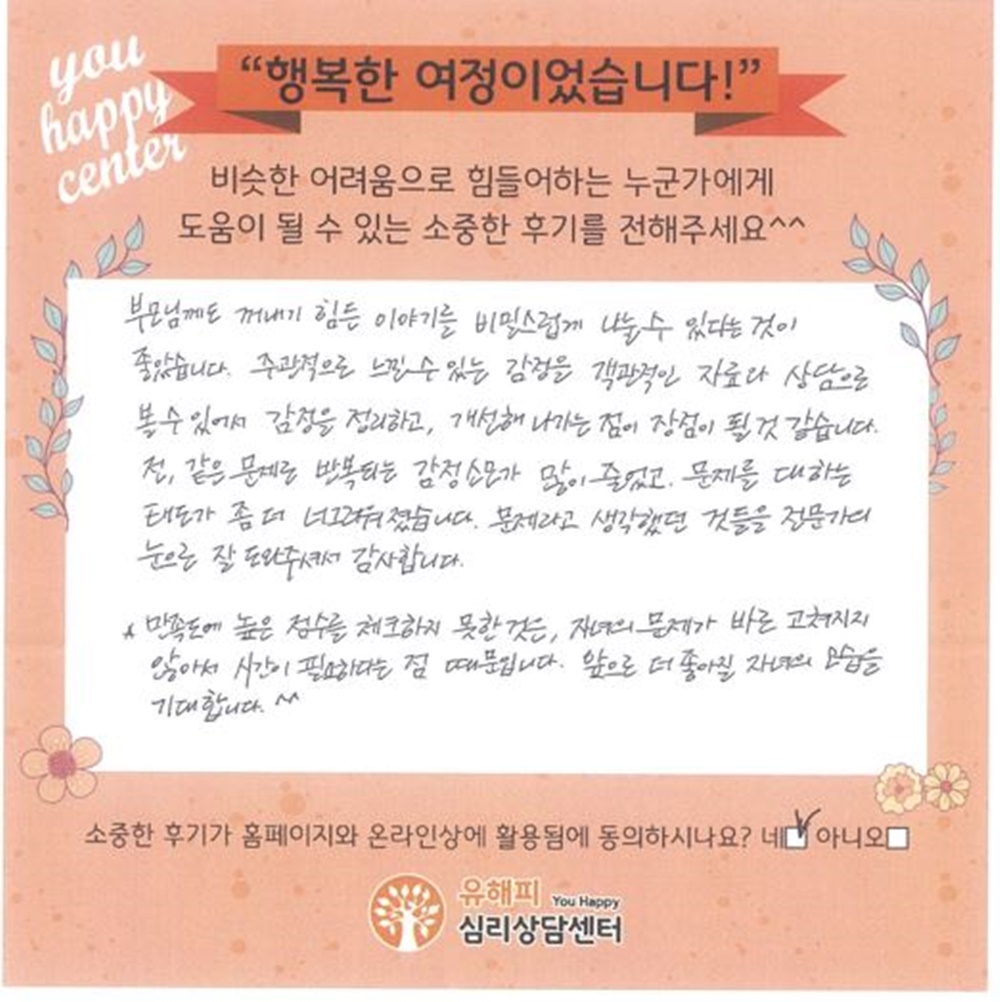 you
happy
center
“행복한 여정이었습니다!”
비슷한 어려움으로 힘들어하는 누군가에게
도움이 될 수 있는 소중한 후기를 전해주세요^^
부모님께도 꺼내기 힘든 이야기를 비밀스럽게 나눌 수 있다는 것이
좋았습니다. 주관적으로 느낄 수 있는 감정을 객관적인 자료와 상담으로
볼 수 있어서 감정을 정리하고, 개선해 나가는 점이 장점이 될 것 같습니다.
전, 같은 문제로 반복되는 감정소모가 많이 줄었고, 문제를 대하는
태도가 좀 더 너그러워졌습니다. 문제라고 생각했던 것들을 전문가의
눈으로 잘 도와주셔서 감사합니다.
* 만족도에 높은 점수를 체크하지 못한 것은, 자녀의 문제가 바로 고쳐지지
않아서 시간이 필요하다는 점 때문입니다. 앞으로 더 좋아질 자녀의 모습을
기대합니다. ^^
소중한 후기가 홈페이지와 온라인상에 활용됨에 동의하시나요? 네☑ 아니오□
유해피 You Happy
심리상담센터